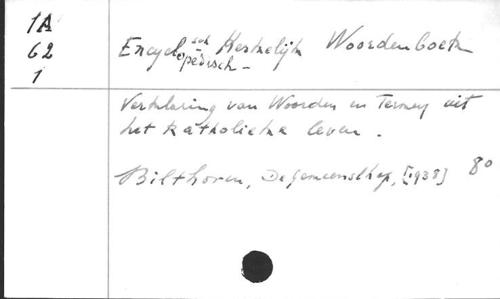 1A
62
1
Encyclopedisch - Kerkelijk Woordenboek
Verklaring van Woorden en Termen uit
het Katholieke leven.
Bilthoven, De Gemeenschap, [1938] 8°